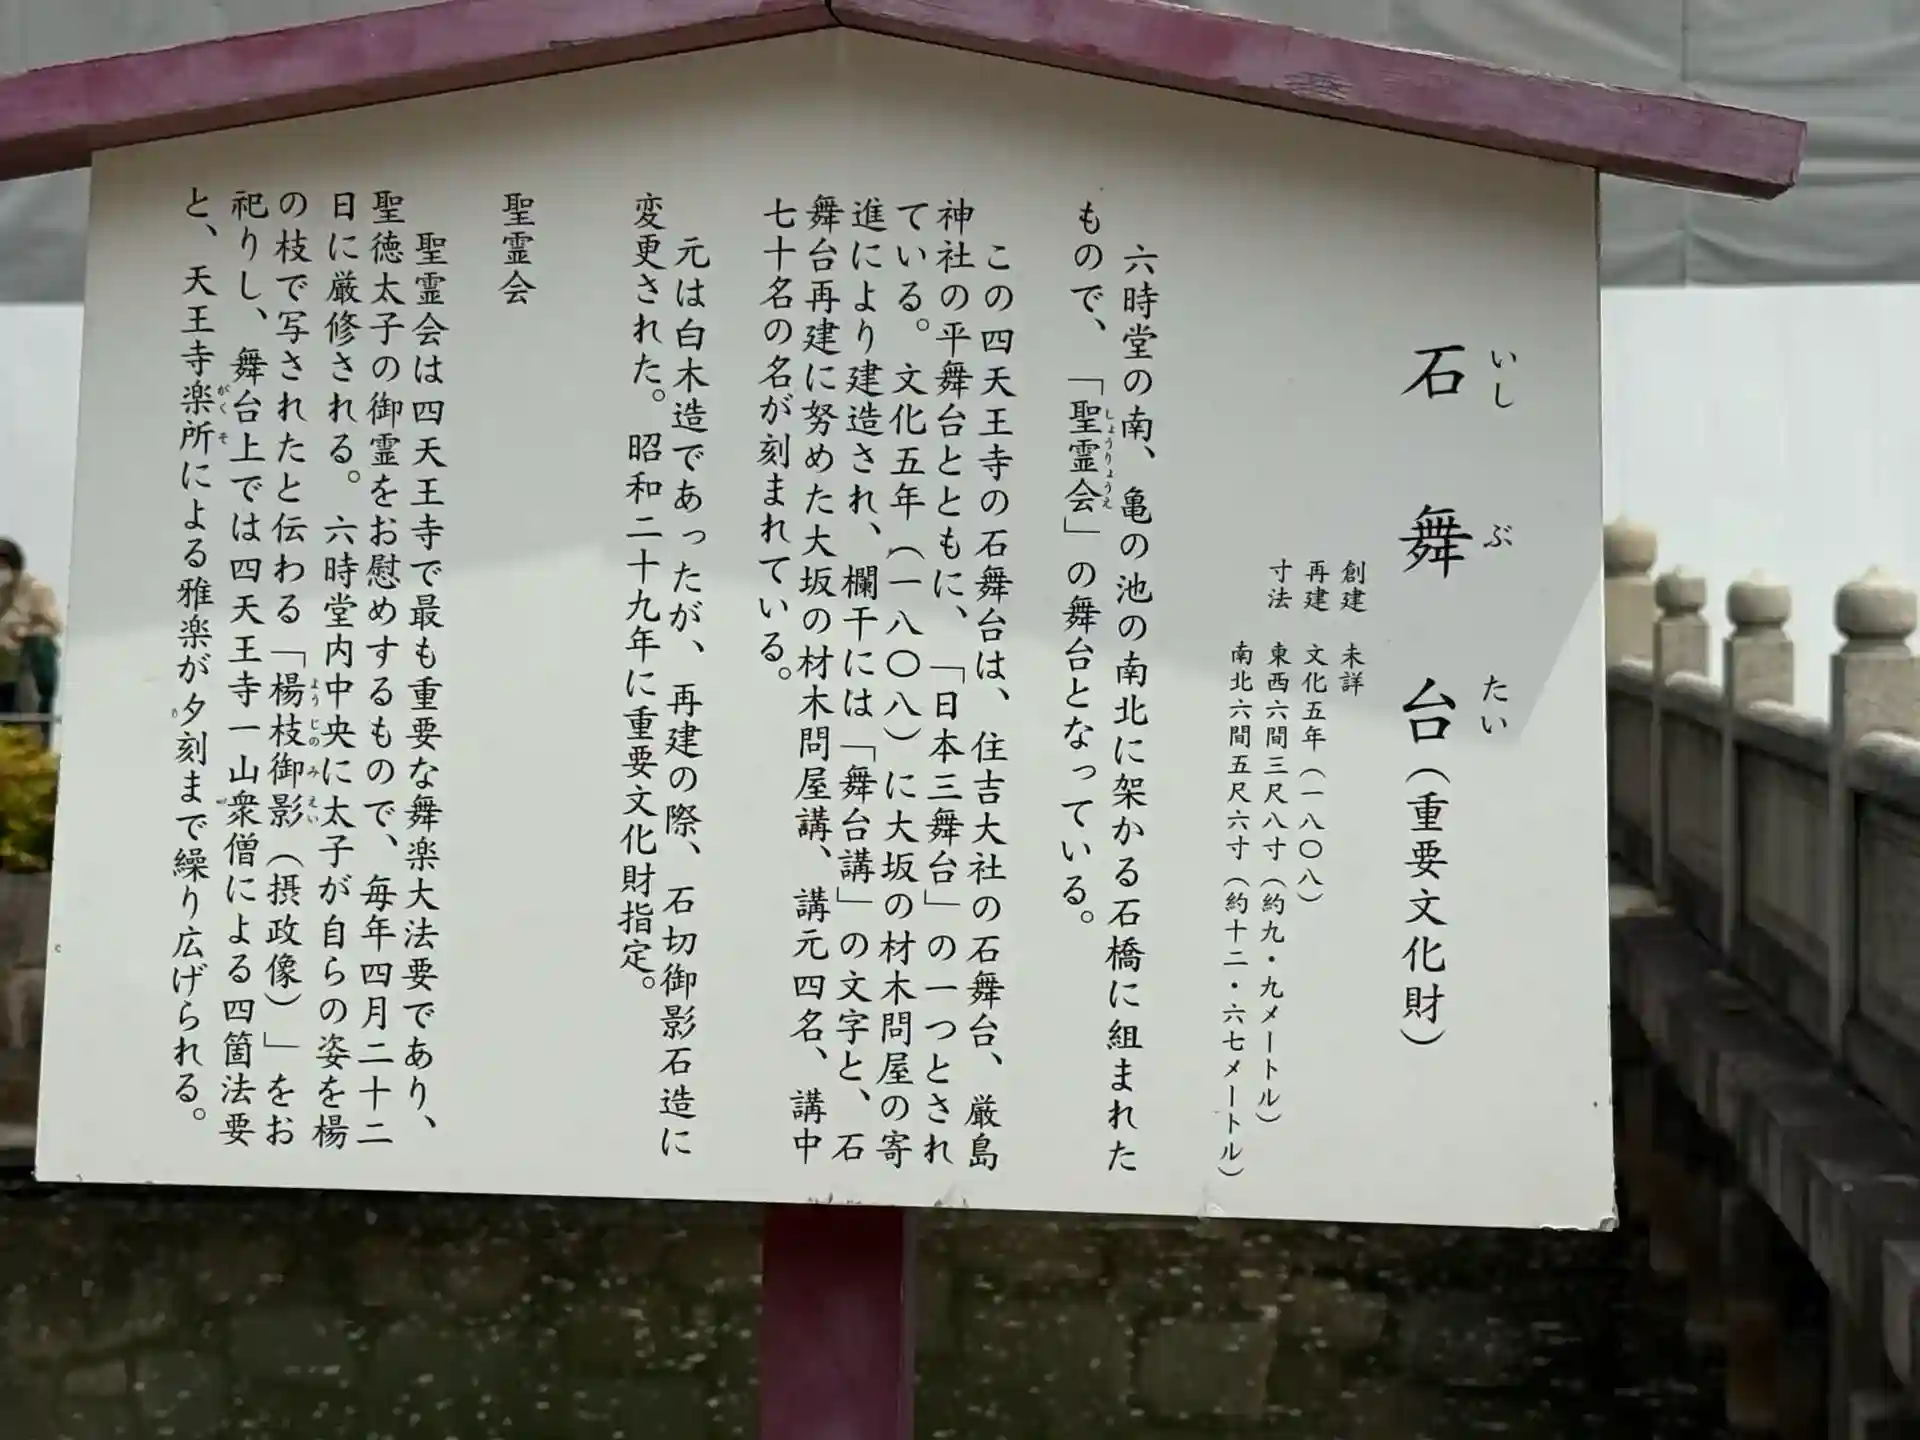 石舞台(重要文化財)
いしぶたい
創建 未詳
再建 文化五年(一八〇八)
寸法 東西六間三尺八寸(約九・九メートル)
南北六間五尺六寸(約十二・六七メートル)
六時堂の南、亀の池の南北に架かる石橋に組まれた
もので、「聖霊会」の舞台となっている。
しょうりょうえ
この四天王寺の石舞台は、住吉大社の石舞台、厳島
神社の平舞台とともに、「日本三舞台」の一つとされ
ている。文化五年(一八〇八)に大坂の材木問屋の寄
進により建造され、欄干には「舞台講」の文字と、石
舞台再建に努めた大坂の材木問屋講、講元四名、講中
七十名の名が刻まれている。
元は白木造であったが、再建の際、石切御影石造に
変更された。昭和二十九年に重要文化財指定。
聖霊会
聖霊会は四天王寺で最も重要な舞楽大法要であり、
聖徳太子の御霊をお慰めするもので、毎年四月二十二
日に厳修される。六時堂内中央に太子が自らの姿を楊
の枝で写されたと伝わる「楊枝御影(摂政像)」をお
ようじのみえい
祀りし、舞台上では四天王寺一山衆僧による四箇法要
と、天王寺楽所による雅楽が夕刻まで繰り広げられる。
がくそ